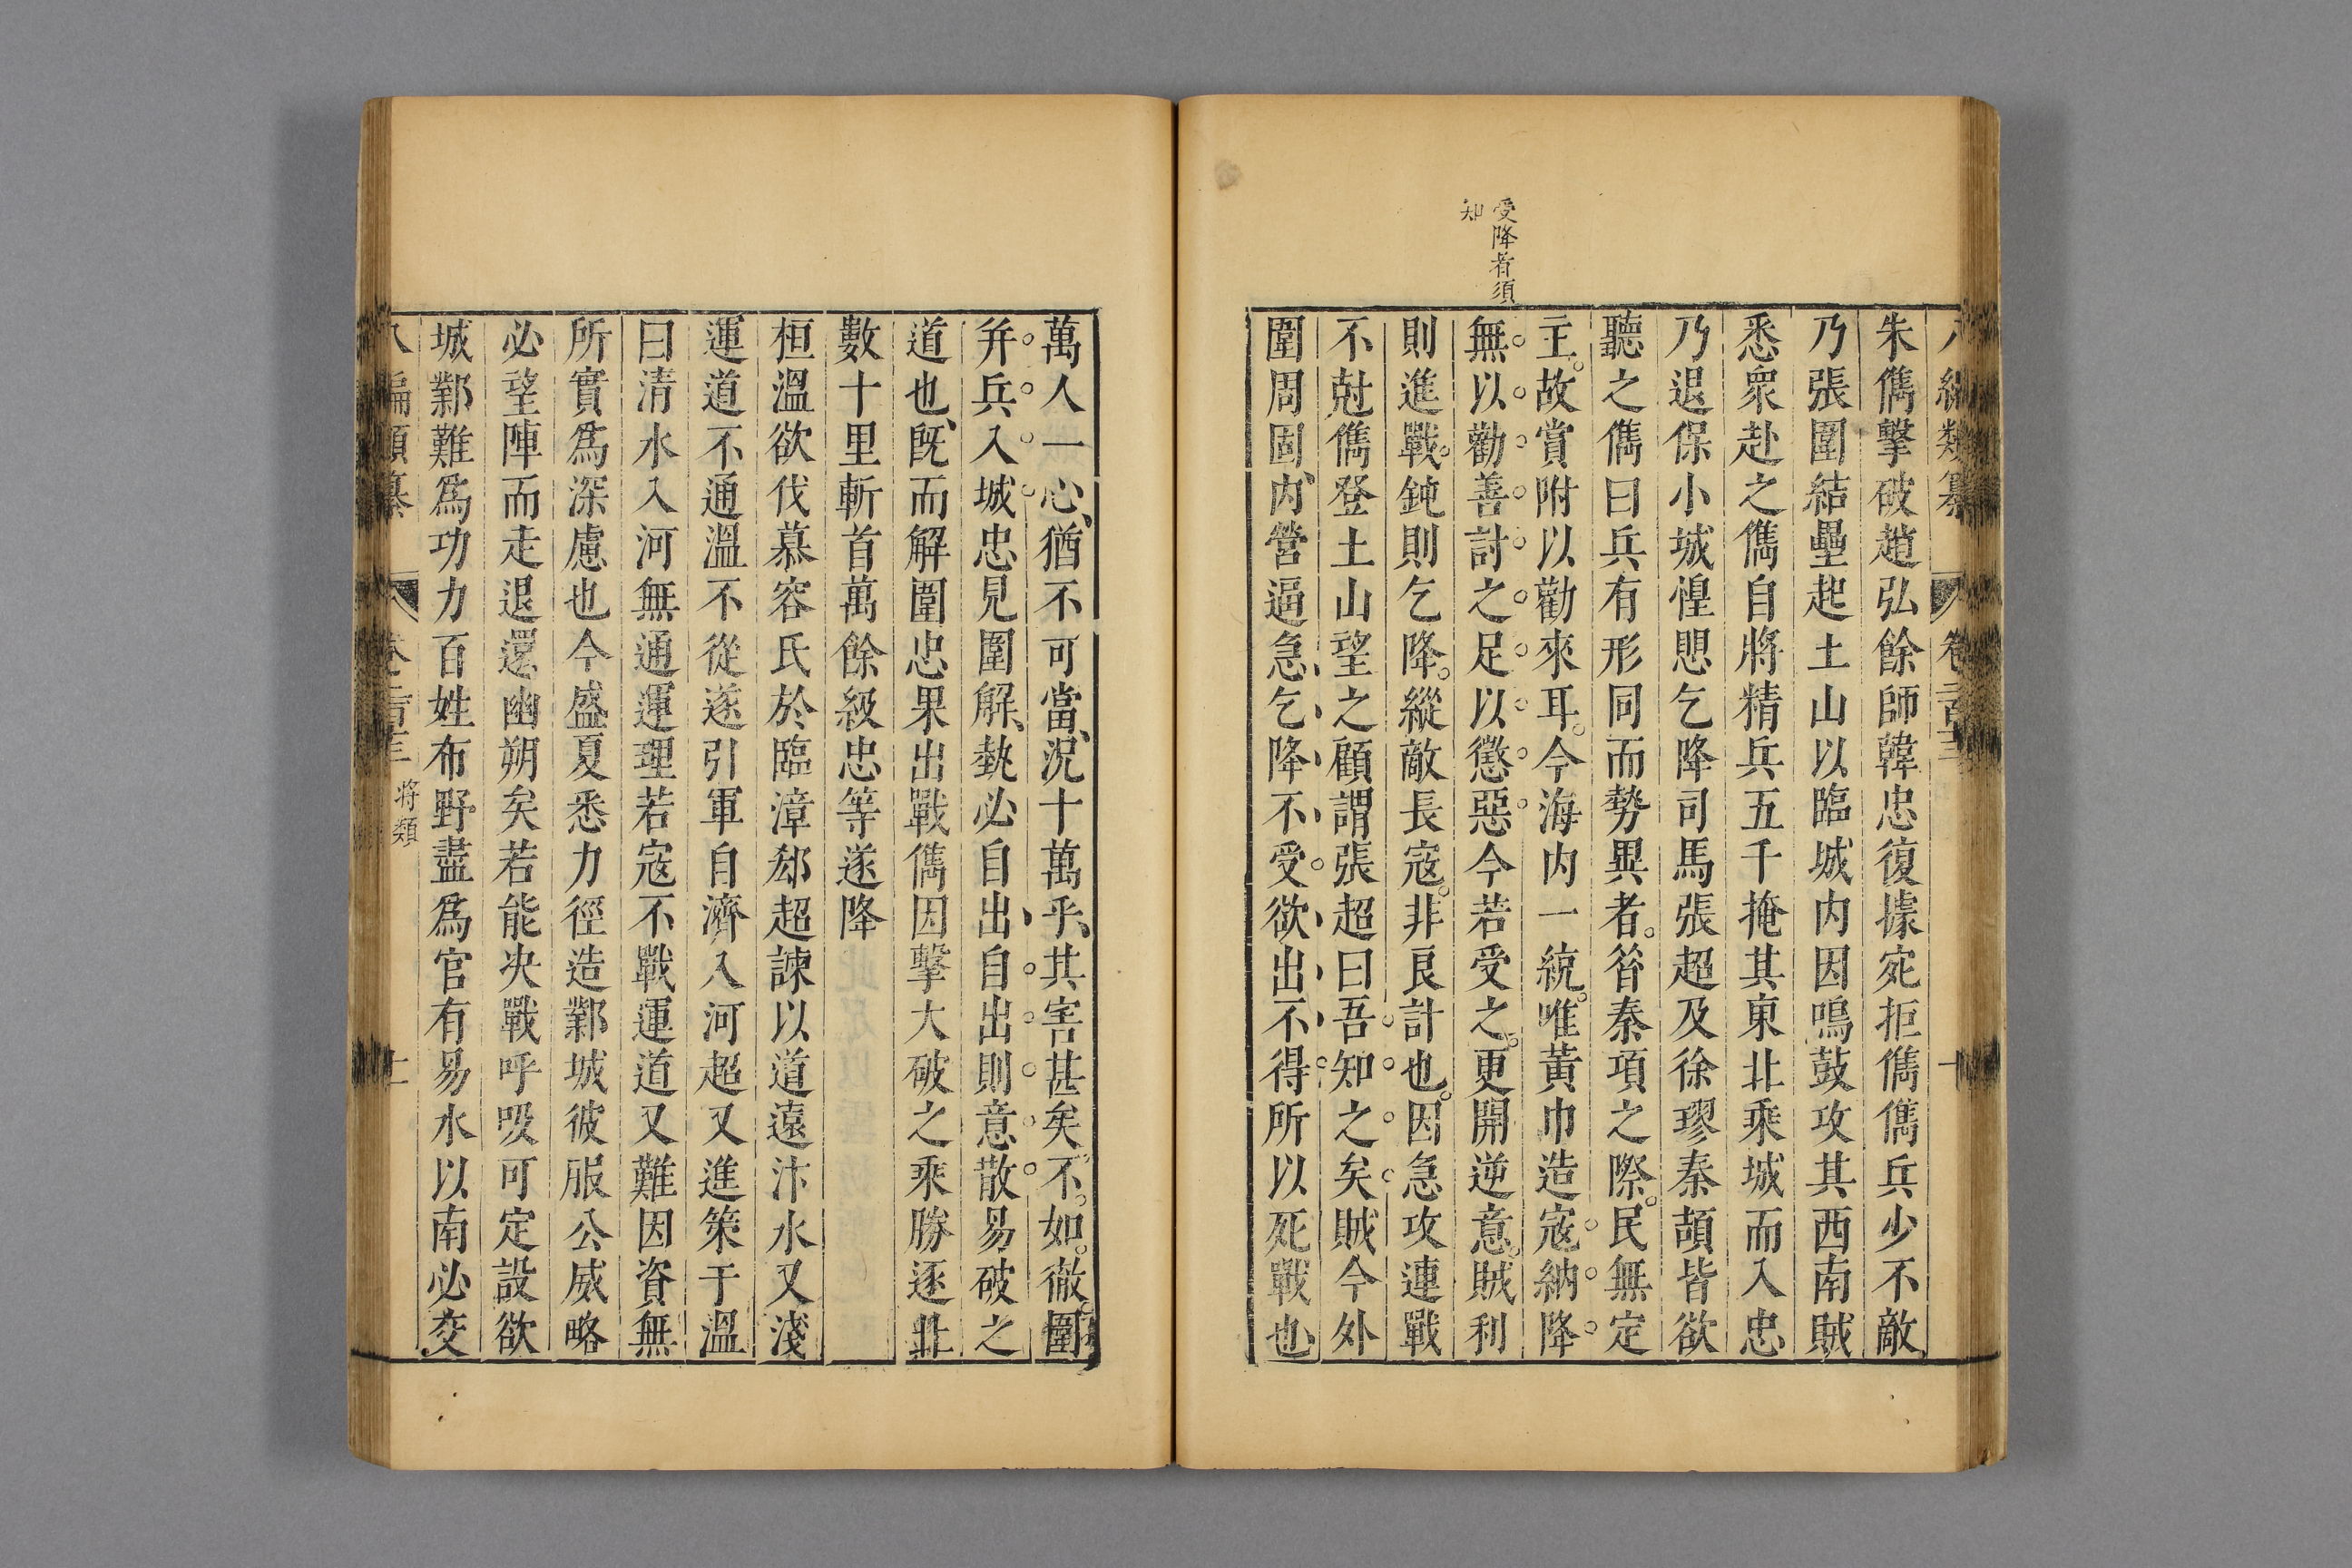 受降者須
知
朱儁擊破趙弘餘師韓忠復據宛拒儁儁兵少不敵
乃張圍結壘起土山以臨城内因鳴鼓攻其西南賊
悉衆赴之儁自將精兵五千掩其東北乘城而入忠
乃退保小城惶思乞降司馬張超及徐璆秦頡皆欲
聽之儁曰兵有形同而勢異者。昔秦項之際。民無定
主。故賞附以勸來耳。今海内一統。唯黃巾造寇納降
無以勸善討之足以懲惡今若受之。更開逆意。賊利
則進戰。鈍則乞降。縱敵長寇。非良計也。因急攻連戰
不尅儁登土山望之顧謂張超曰吾知之矣賊今外
圍周固、内營逼急、乞降不受欲出不得所以死戰也、
萬人一心、猶不可當、況十萬乎、其害甚矣。不如。徹圍
并兵入城忠見圍解、埶必自出自出則意散易破之
道也、旣而解圍忠果出戰儁因擊大破之乘勝逐北
數十里斬首萬餘級忠等遂降
桓溫欲伐慕容氏於臨漳郄超諫以道遠汴水又淺
運道不通溫不從遂引軍自濟入河超又進策于溫
曰清水入河無通運理若寇不戰運道又難因資無
所實爲深慮也今盛夏悉力徑造鄴城彼服公威略
必望陣而走退還幽朔矣若能决戰呼吸可定設欲
城鄴難爲功力百姓布野盡爲官有易水以南必交
八編類纂 將類